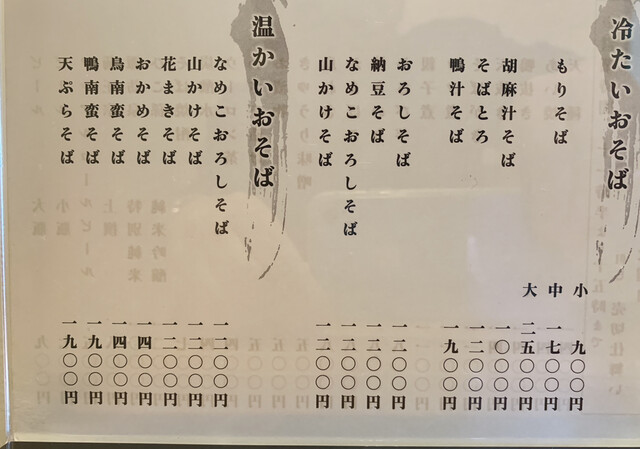 冷たいおそば
もりそば 小 九〇〇円
中 一七〇〇円
大 二五〇〇円
胡麻汁そば 一〇〇〇円
そばとろ 一二〇〇円
鴨汁そば 一九〇〇円
おろしそば 一二〇〇円
納豆そば 一二〇〇円
なめこおろしそば 一二〇〇円
山かけそば 一二〇〇円
温かいおそば
なめこおろしそば 一二〇〇円
山かけそば 一二〇〇円
花まきそば 一二〇〇円
おかめそば 一四〇〇円
鳥南蛮そば 一四〇〇円
鴨南蛮そば 一九〇〇円
天ぷらそば 一九〇〇円